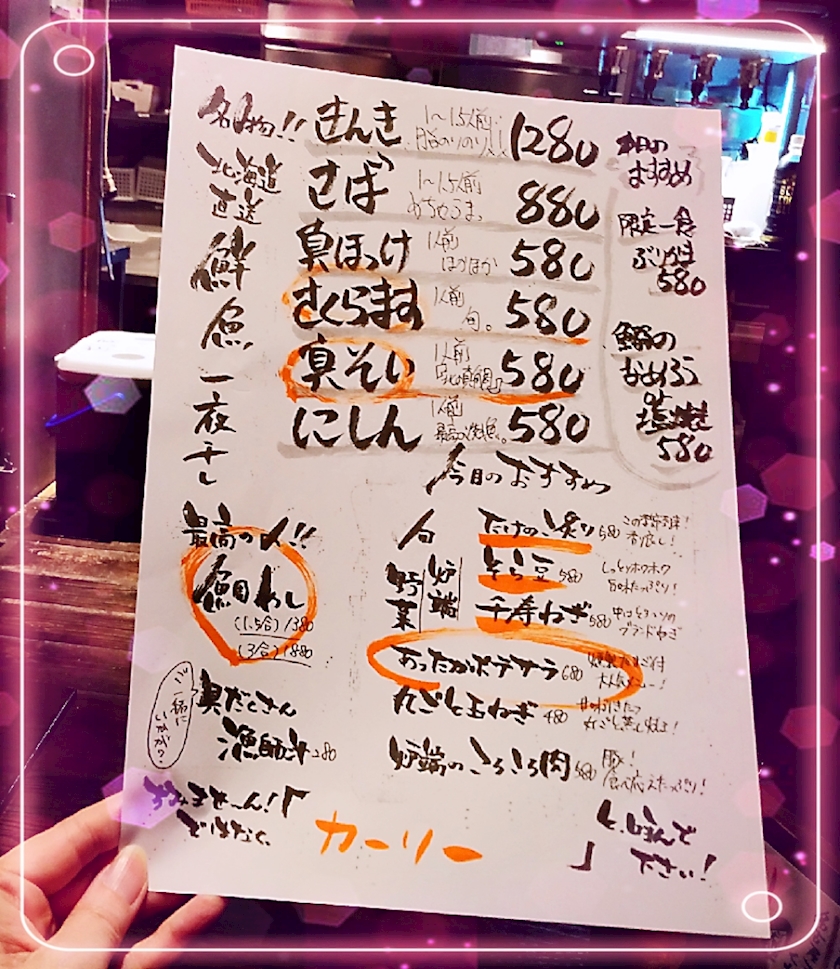 名物!!
北海道
直送
鮮魚一夜干し
きんき 1〜1.5人前 脂のりのり 1280
さば 1〜1.5人前 めちゃうまっ 880
真ほっけ 1人前 ほかほか 580
さくらます 1人前 旬。 580
真そい 1人前 580
にしん 1人前 580
本日の
おすすめ
限定一食
ぶりかま
580
鰯の
なめろう
塩焼
580
今日のおすすめ
最高の〆!!
鯛めし
(1.5合) 1380
(3合) 1880
ご一緒に
いかが?
具だくさん
漁師汁 280
旬
野菜
炉端
たけのこ炙り 580 この季節到来! 香り良し!
そら豆 580 しっとりホクホク
千寿ねぎ 580 ブランドねぎ
あったかポテサラ 680
丸ごと玉ねぎ 480
炉端のころころ肉 580 豚! 食べ応えたっぷり!
すみませーん!「
ではなく、
カーリー
」と呼んで
下さい!